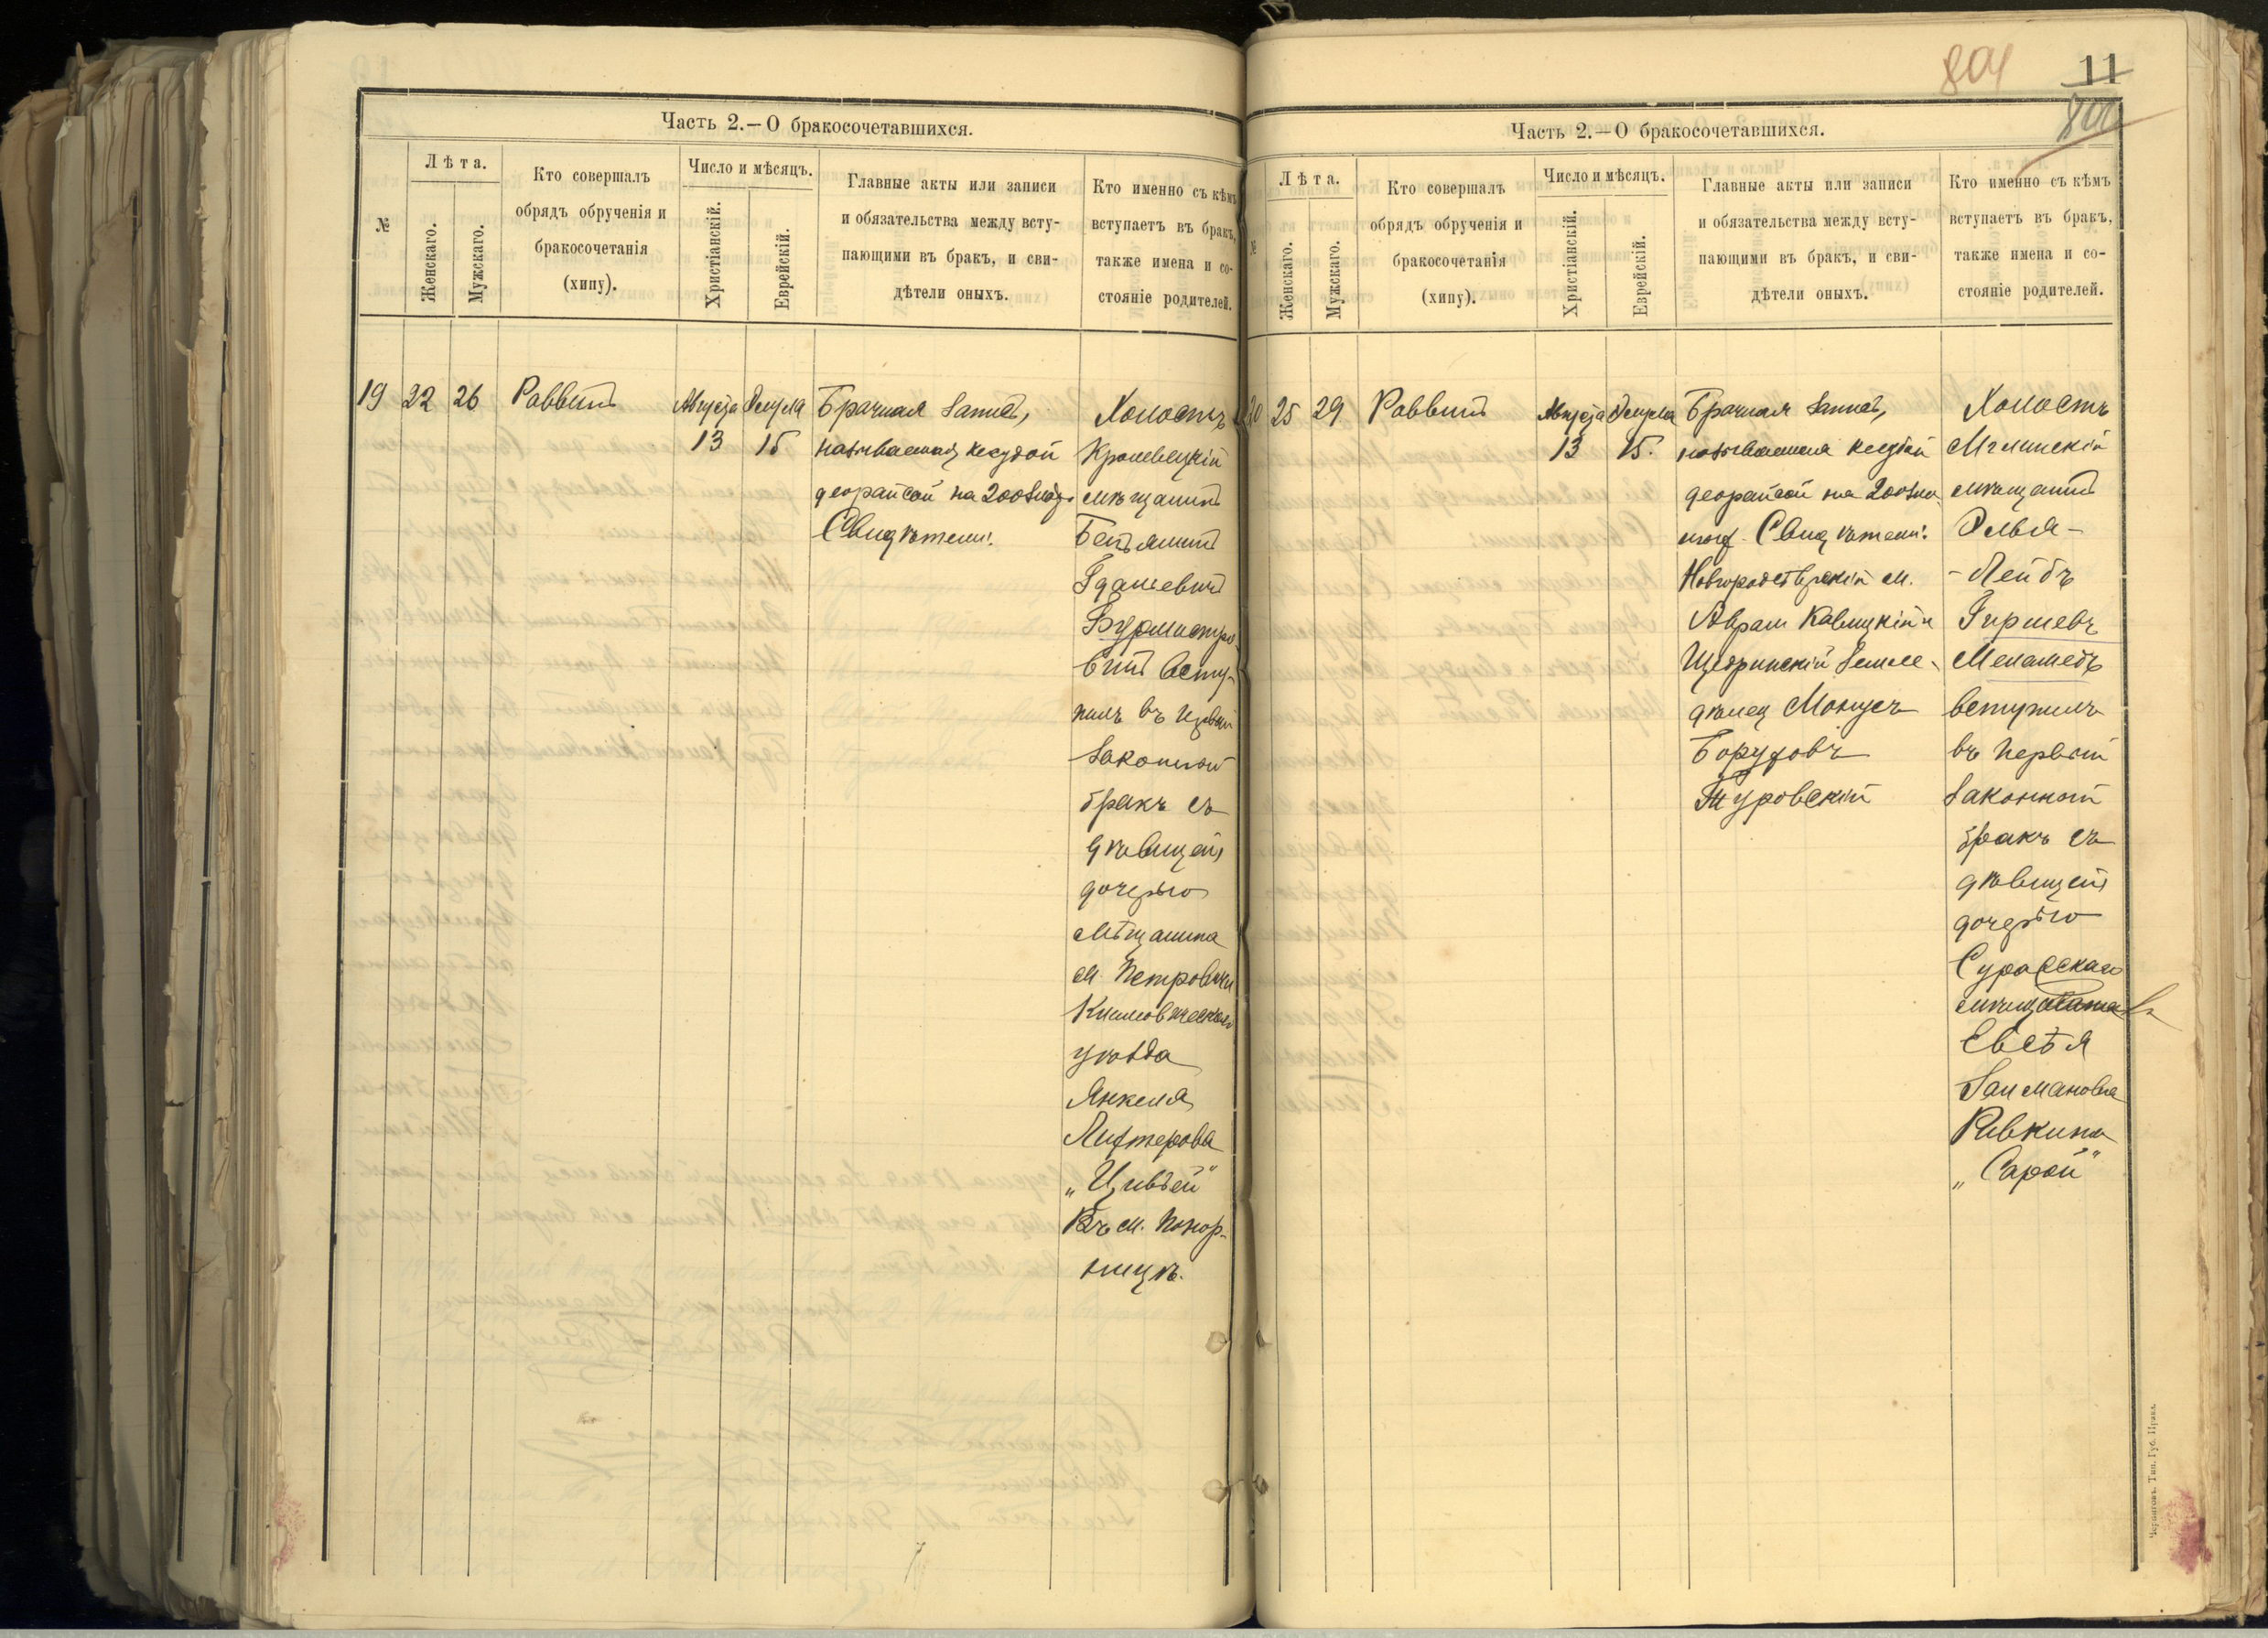 Часть 2.—О бракосочетавшихся.
№
Лѣта.
Женскаго.
Мужскаго.
Кто совершалъ
обрядъ обрученія и
бракосочетанія
(хипу).
Число и мѣсяцъ.
Христіанскій.
Еврейскій.
Главные акты или записи
и обязательства между всту-
пающими въ бракъ, и сви-
дѣтели оныхъ.
Кто именно съ кѣмъ
вступаетъ въ бракъ,
также имена и со-
стояніе родителей.
19 22 26 Раввинъ
Августа
13
Элула
15
Брачная запись,
называемая кесубой
деорайсой на 200 злот.
Свидѣтели:
Холостъ
Кролевецкій
мѣщанинъ
Беньяминъ
Гдальевичъ
Бурмистро
вичъ всту-
пилъ въ первый
законный
бракъ съ
дѣвицей
дочерью
мѣщанина
м. Петровичи
Климовическаго
уѣзда
Янкеля
Лифтерова
„Цивьей"
Въ м. Понор-
ницѣ.
804
11
Часть 2.—О бракосочетавшихся.
№
Лѣта.
Женскаго.
Мужскаго.
Кто совершалъ
обрядъ обрученія и
бракосочетанія
(хипу).
Число и мѣсяцъ.
Христіанскій.
Еврейскій.
Главные акты или записи
и обязательства между всту-
пающими въ бракъ, и сви-
дѣтели оныхъ.
Кто именно съ кѣмъ
вступаетъ въ бракъ,
также имена и со-
стояніе родителей.
20 25 29 Раввинъ
Августа
13
Элула
15.
Брачная запись,
называемая кесубой
деорайсой на 200 зло
тыхъ. Свидѣтели:
Новгородсѣверскій м.
Аврам и
Щедринскій земле-
дѣлец Монусъ
Боруховъ
Туровскій
Холостъ
Мглинскій
мѣщанинъ
Элья-
-Лейбъ
Гиршевъ
Меламедъ
вступилъ
въ первый
законный
бракъ съ
дѣвицей
дочерью
Суражскаго
мѣщанина
Евсѣя
Залмановна
Ривкина
„Сарой"
Черниговъ. Тип. Губ. Правл.